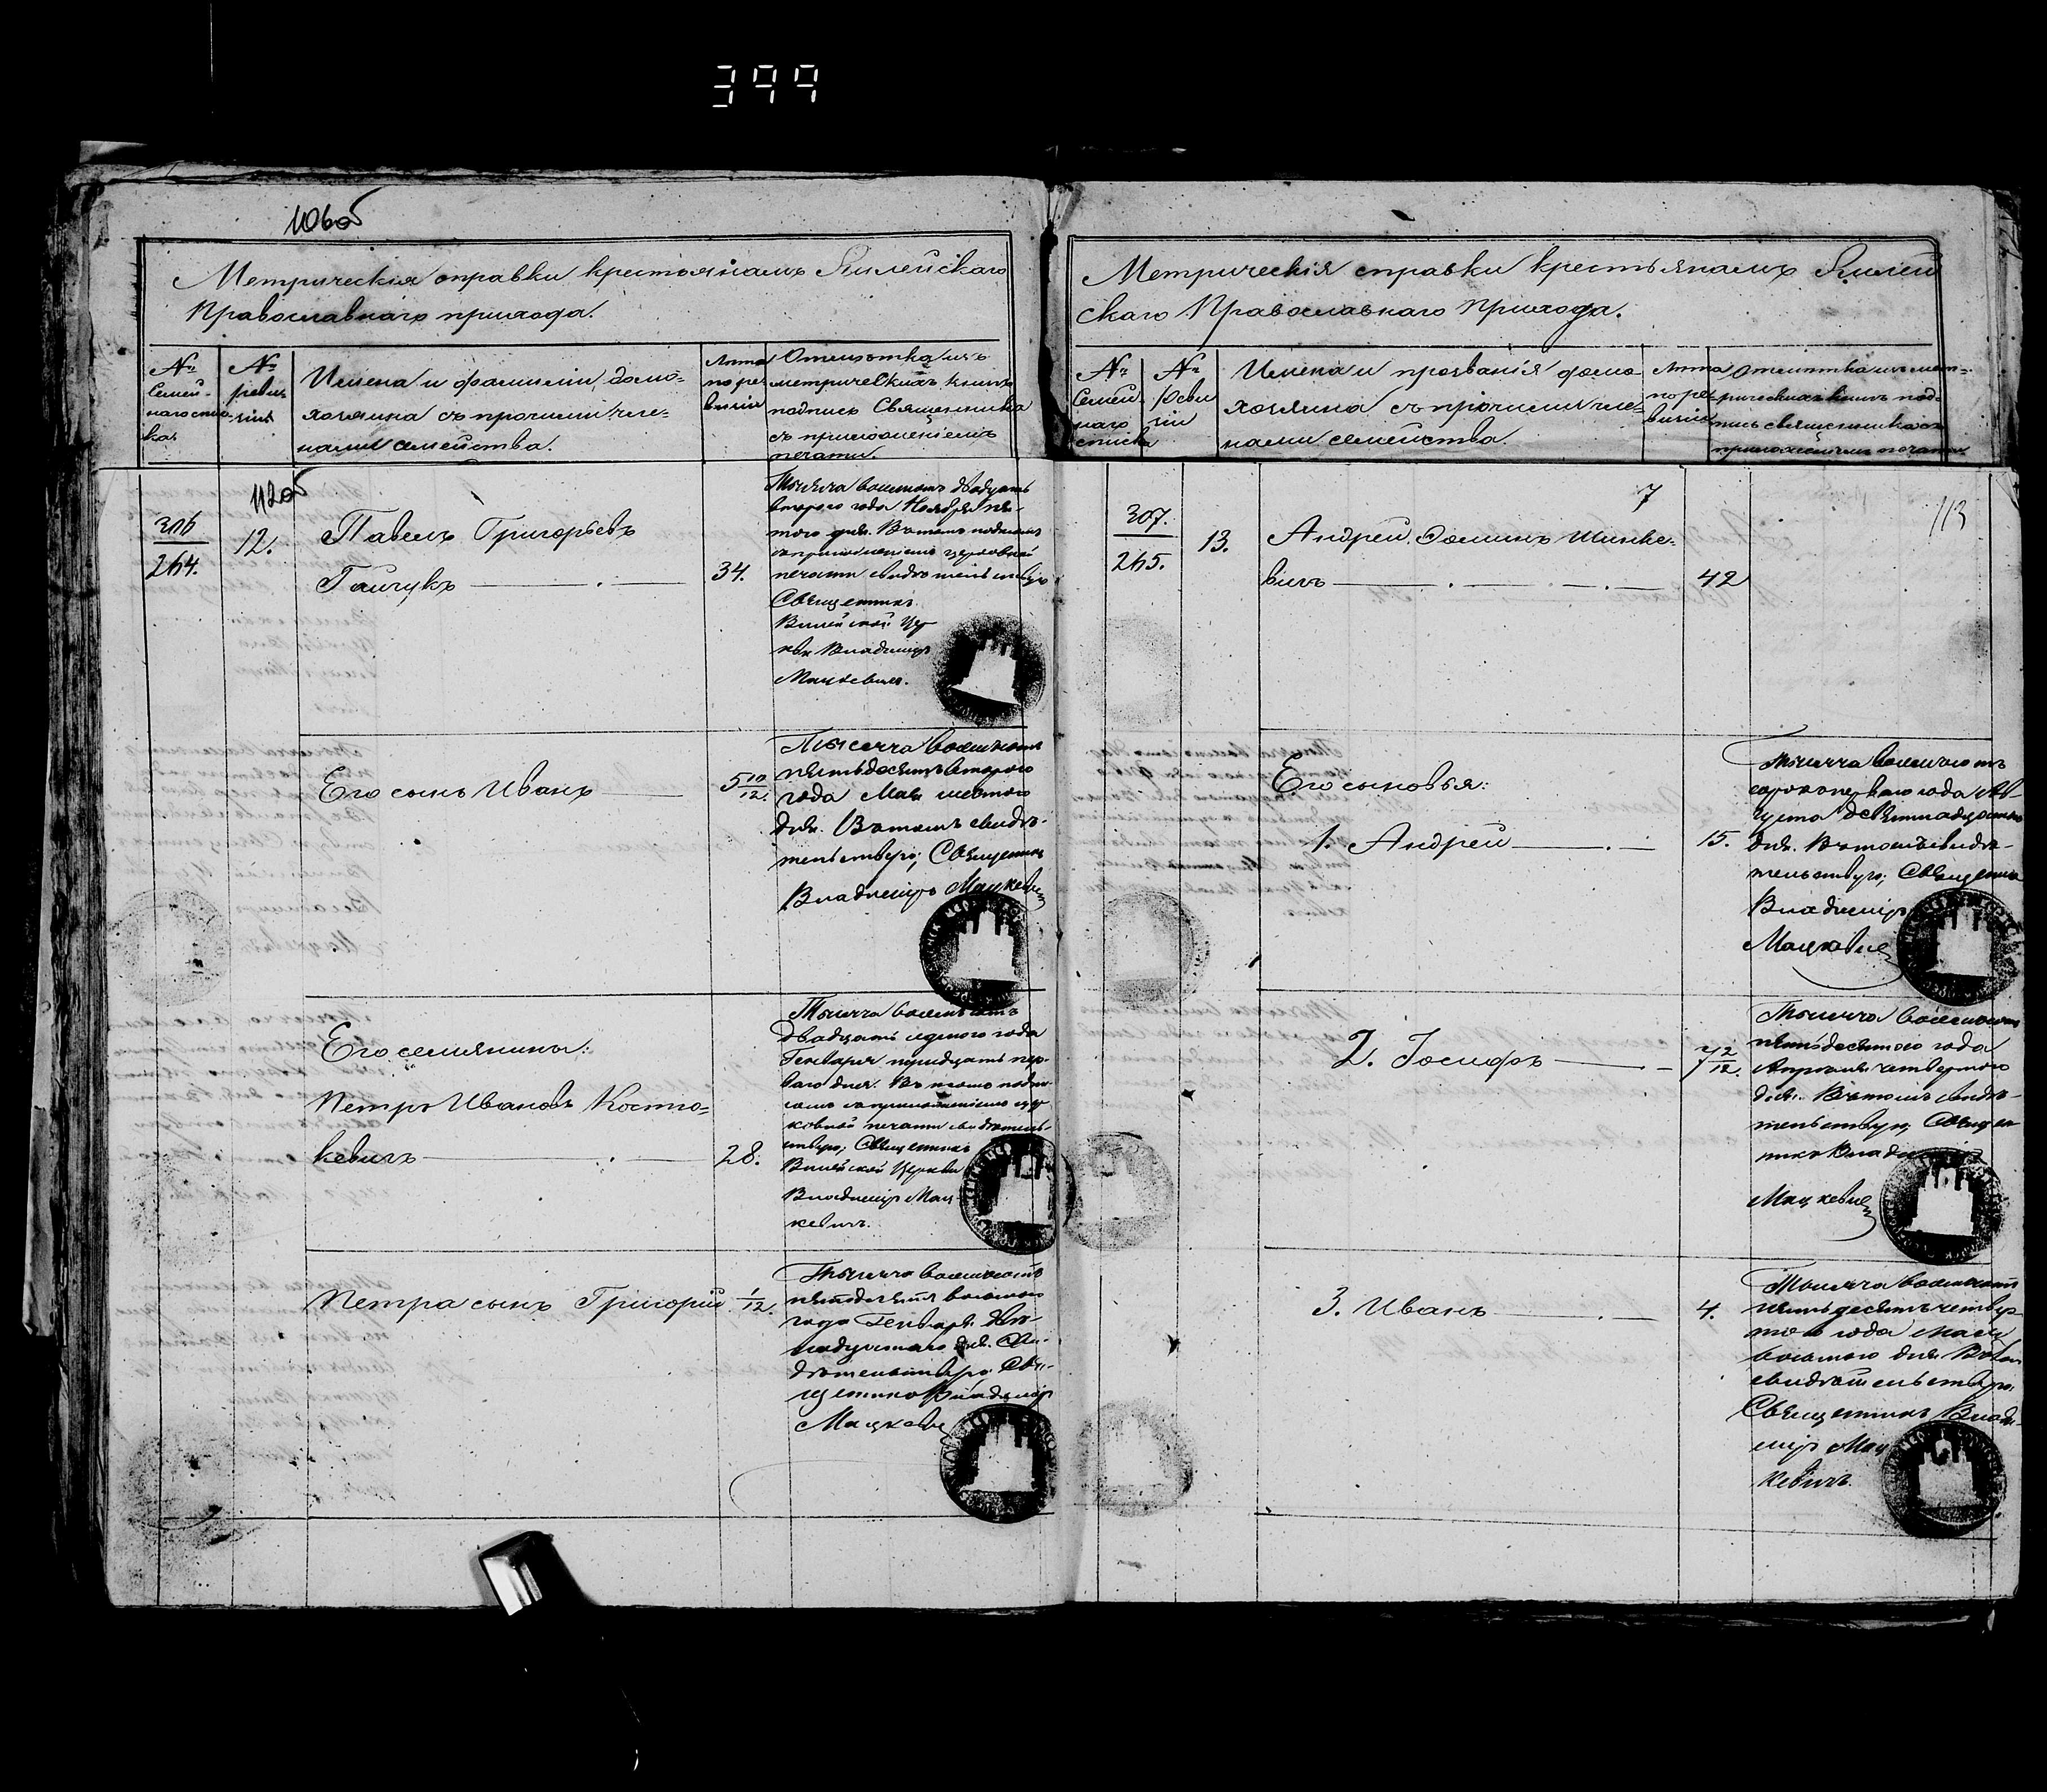 399
110об
Метрическія справки крестьянамъ
Православнаго прихода.
№
Семей-
наго спис-
ка
№
реви-
зіи
Имена и фамиліи домо-
хозяина съ прочими чле-
нами семейства.
Лета
по ре
визіи
Отметка изъ
метрическихъ книгъ
подпись Священника
съ приложеніемъ
печати.
112об
306
264.
12.
Павелъ Григорьевъ
34.
Тысяча восемьсотъ двадцать
втораго года Ноября пя-
того дня. Въ томъ подписомъ
съ приложеніемъ церковной
печати свидетельствую
Священникъ
Вилейской Цер
кви Владиміръ
Мацкевичъ.
Его сынъ Иванъ
5 10/12.
Тысяча восемьсотъ
пятьдесятъ втораго
года Мая шестого
дня. Въ томъ свидѣ-
тельствую; Священникъ
Владиміръ Мацкевичъ
Его семянины:
Петръ Ивановъ Костю-
кевичъ
28.
Тысяча восемьсотъ
двадцать года
Генваря тридцать пер-
ваго дня. Въ томъ подпи-
сомъ съ приложеніемъ цер
ковной печати свидѣтель-
ствую; Священникъ
Вилейской Церкви
Владиміръ Мац
кевичъ.
Петра сынъ Григорій
1/12.
Тысяча восемьсотъ
пятьдесятъ восьмого
года Генваря
дня. Сви-
дѣтельствую: Свя-
щенникъ Владиміръ
Мацкевичъ
Метрическія справки крестьянамъ
скаго Православнаго Прихода.
№
Семей
наго
списка
№
Реви
зіи
Имена и прозванія домо-
хозяина съ прочими чле-
нами семейства.
Лета
по ре
визіи
Отметка изъ мет-
рическихъ книгъ под-
пись священника съ
приложеніемъ печати
7
113
307.
265.
13.
Андрей Ѳоминъ Шинке-
вичъ
42
Его сыновья:
1. Андрей
15.
Тысяча восемьсотъ
сорокъ перваго года Ав-
густа девятнадцатаго
дня. Въ томъ свидѣ-
тельствую; Священникъ
Владиміръ
Мацкевичъ
2. Іосифъ
Тысяча восемьсотъ
пятьдесятого года
Апреля четвертого
дня. Въ томъ свидѣ-
тельствую, Священ
никъ Владиміръ
Мацкевичъ
3. Иванъ
4.
Тысяча восемьсотъ
пятьдесятъ четвер
того года Мая
восьмого дня. Въ томъ
свидѣтельствую.
Священникъ Влади-
міръ Мац
кевичъ.